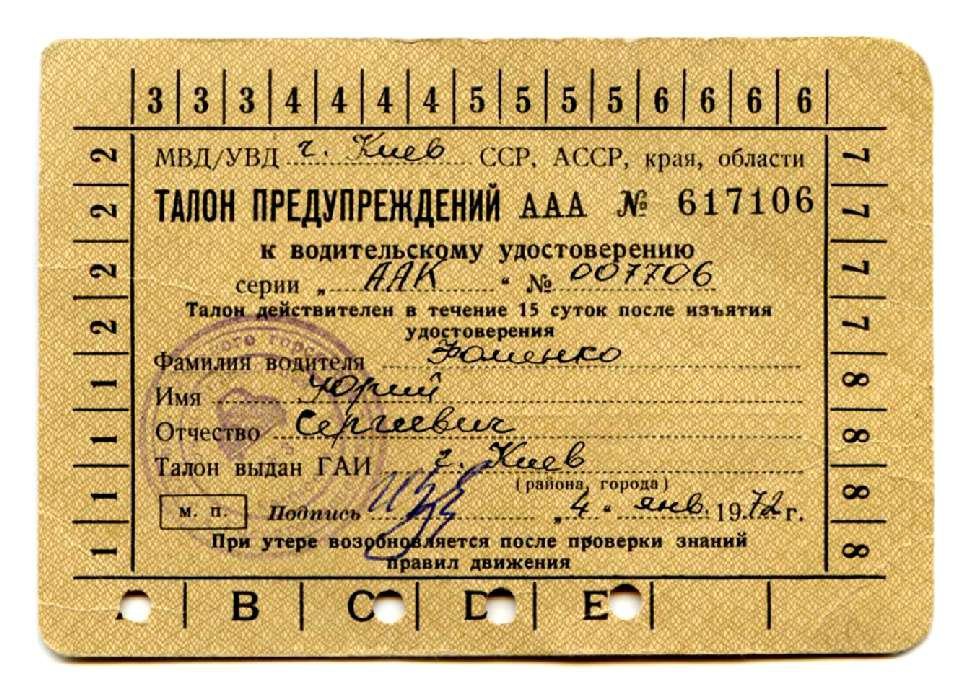 3 3 3 4 4 4 4 5 5 5 5 6 6 6 6
2 2 2 2 1 1 1 1
МВД/УВД г. Киев ССР, АССР, края, области
ТАЛОН ПРЕДУПРЕЖДЕНИЙ ААА № 617106
к водительскому удостоверению
серии „ААК“ № 007706
Талон действителен в течение 15 суток после изъятия
удостоверения
Фамилия водителя Фоменко
Имя Юрий
Отчество Сергеевич
Талон выдан ГАИ г. Киев
(района, города)
м. п. Подпись „4“ янв. 1972 г.
При утере возобновляется после проверки знаний
правил движения
7 7 7 7 8 8 8 8
A B C D E